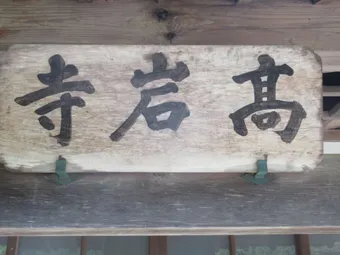 髙岩寺